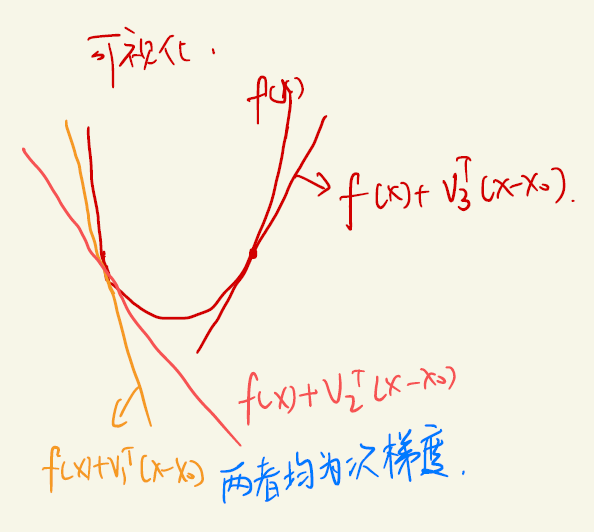 可视化.
f(x)
f(x)+V₃ᵀ(x-x₀).
f(x)+V₂ᵀ(x-x₀)
f(x)+V₁ᵀ(x-x₀)
两者均为次梯度.